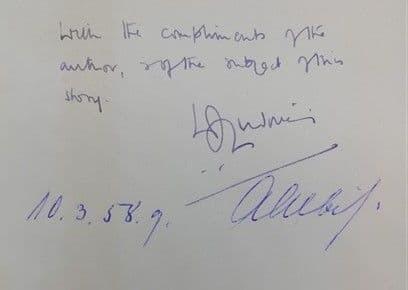 With the compliments of the
author, & of the subject of this
story.
10.3.58.